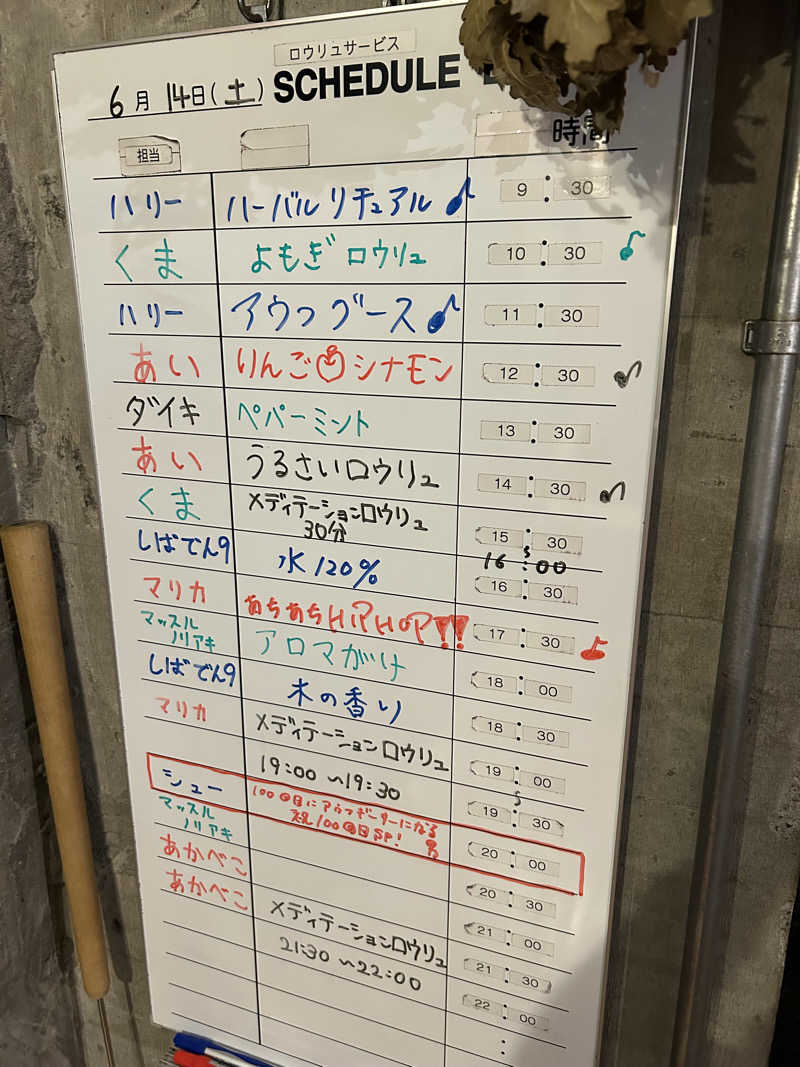 ロウリュサービス
6月 14日(土) SCHEDULE
担当 時間
ハリー ハーバルリチュアル♪ 9:30
くま よもぎロウリュ 10:30 ♪
ハリー アウフグース♪ 11:30
あい りんごシナモン 12:30 ♪
ダイキ ペパーミント 13:30
あい うるさいロウリュ 14:30 ♪
くま メディテーションロウリュ 15:30
30分 16:00
しばでん9 水120% 16:30
マリカ あちあちHIPHOP!! 17:30 ♪
マッスル
ノリアキ アロマがけ 18:00
しばでん9 木の香り 18:30
マリカ メディテーションロウリュ 19:00
19:00〜19:30 19:30
シュー 100回目にアウフギーサーになる
祝100回目SP! 20:00
マッスル
ノリアキ 20:30
あかべこ 21:00
あかべこ メディテーションロウリュ 21:30
21:30〜22:00 22:00